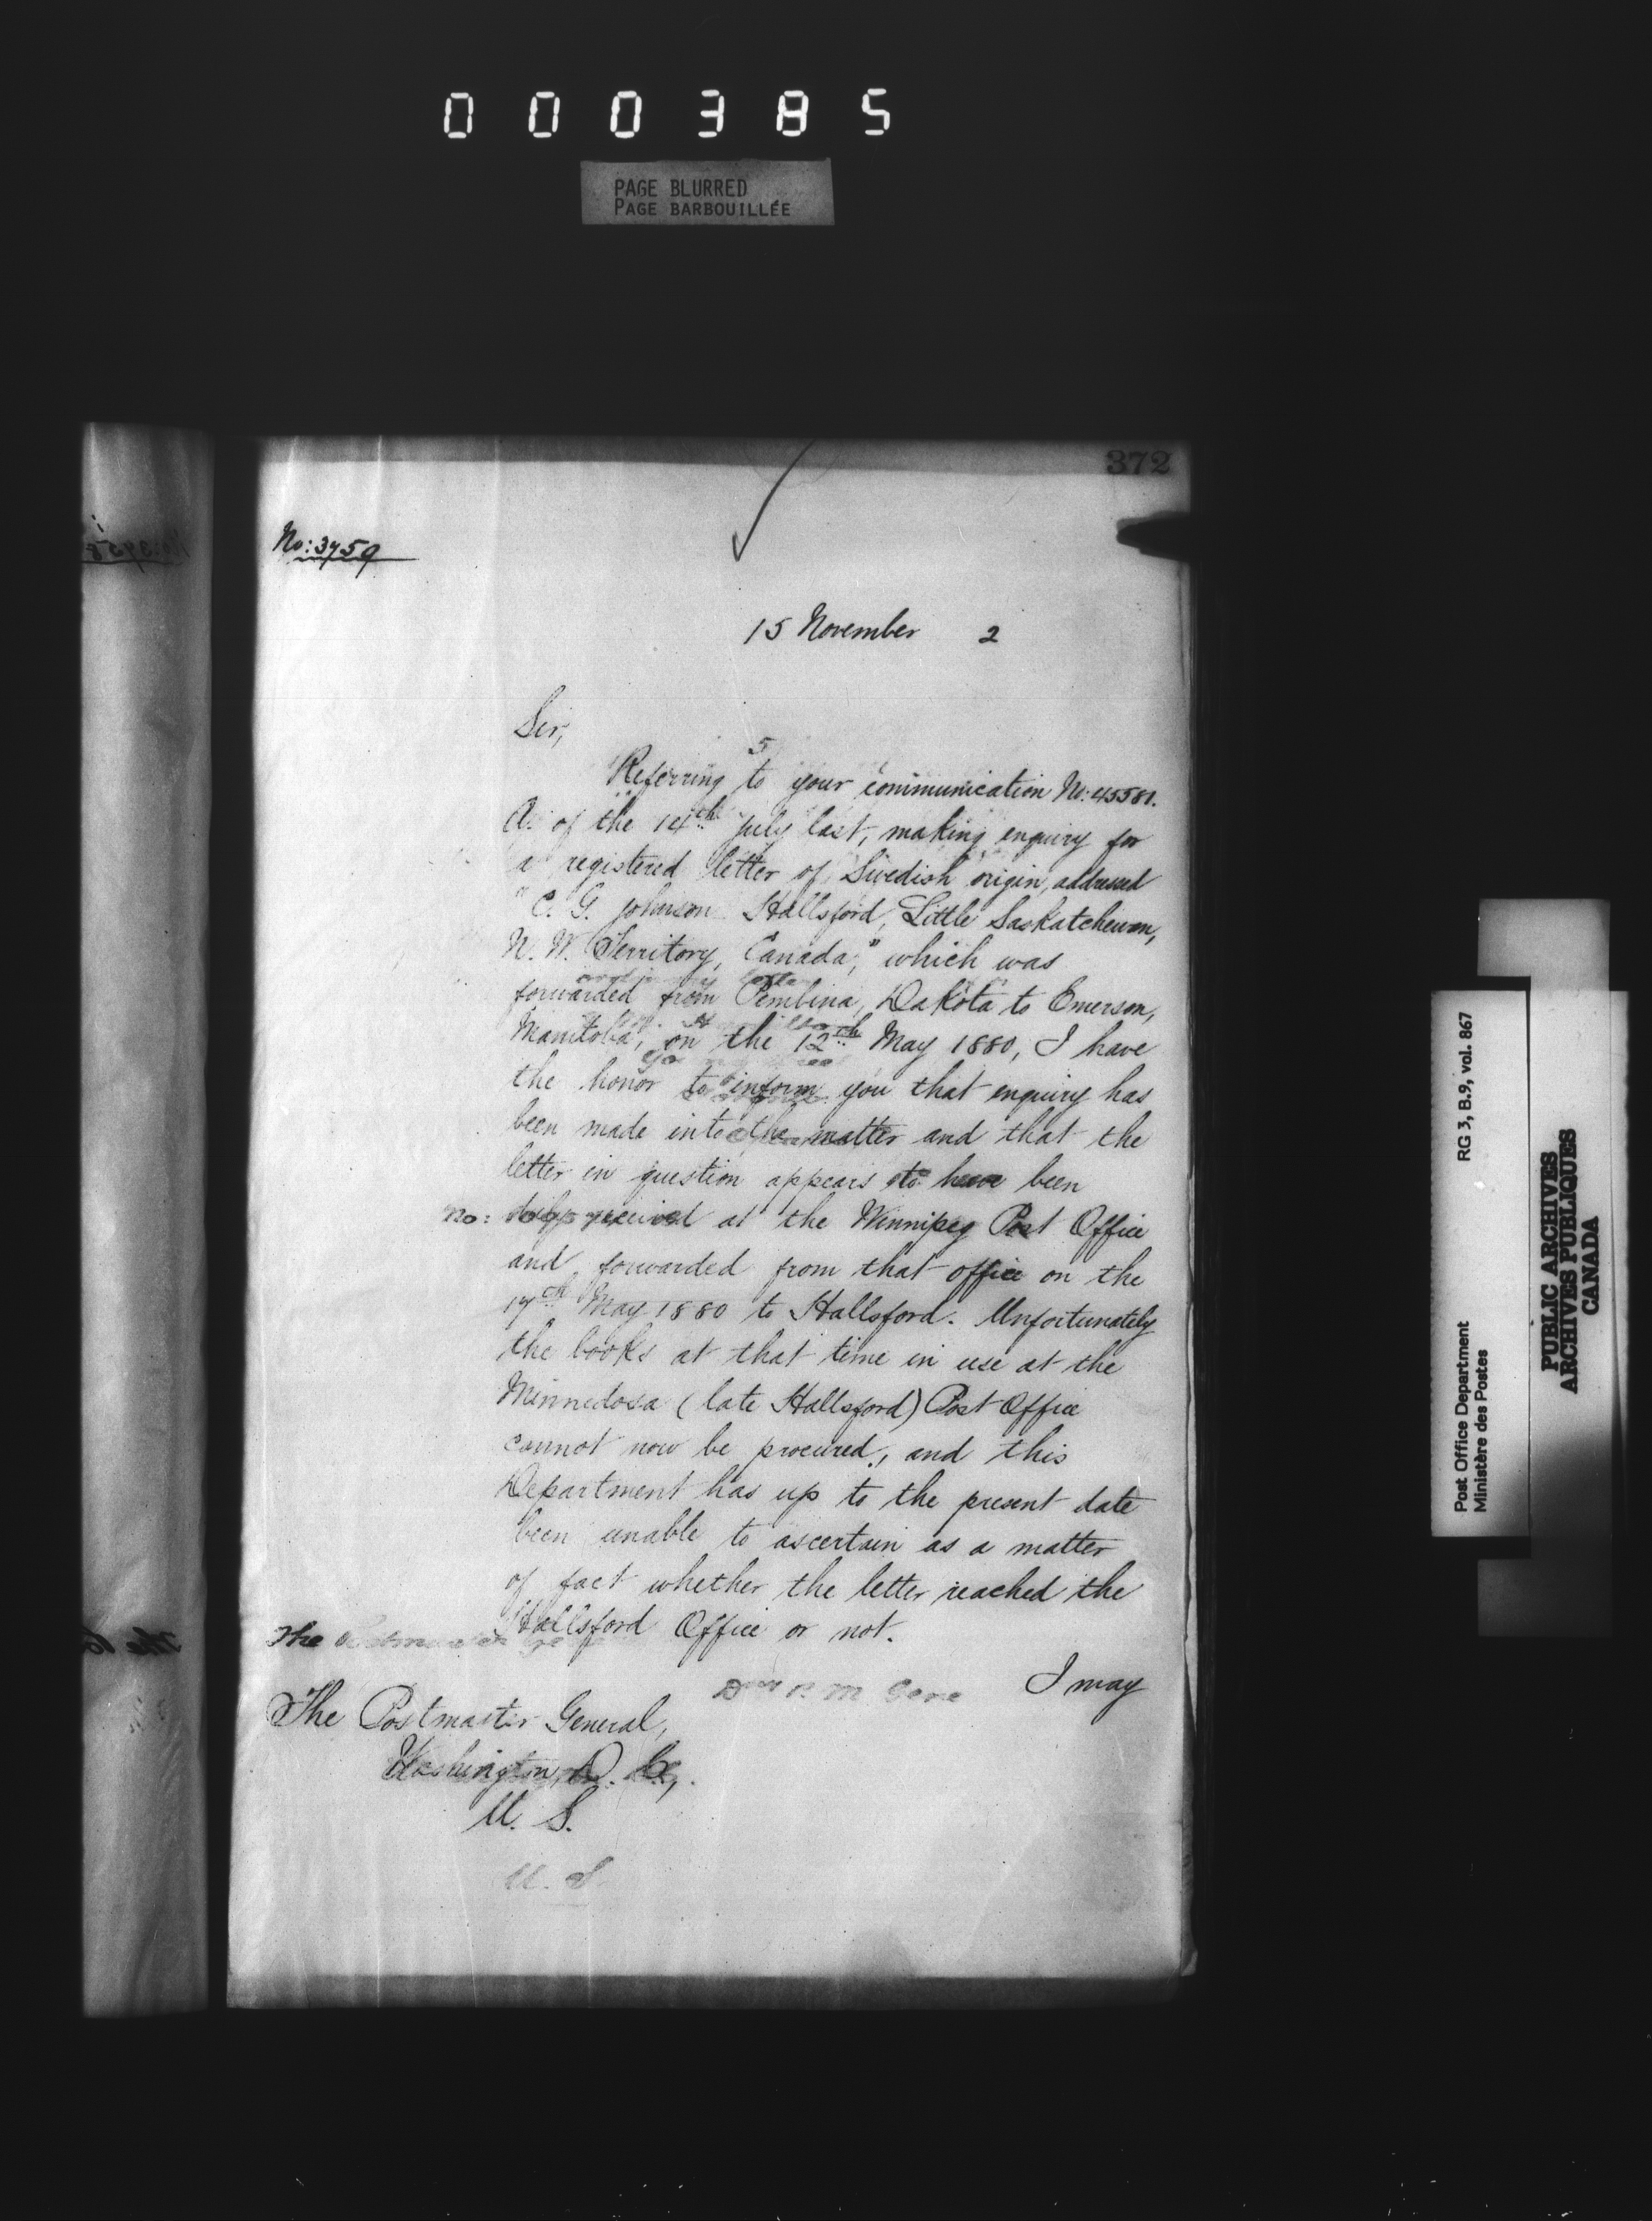 000385
PAGE BLURRED
PAGE BARBOUILLÉE
372
No: 3759
15 November 2
Sir,
Referring to your communication No: 45581.
A. of the 14th July last, making enquiry for
a registered letter of Swedish origin, addressed
"C. G. Johnson Hallsford, Little Saskatchewan,
N. W. Territory, Canada," which was
forwarded from Pembina, Dakota to Emerson,
Manitoba, on the 12th May 1880, I have
the honor to inform you that enquiry has
been made into the matter and that the
letter in question appears to have been
No: duly received at the Winnipeg Post Office
and forwarded from that office on the
17th May 1880 to Hallsford. Unfortunately
the books at that time in use at the
Minnedosa (late Hallsford) Post Office
cannot now be procured, and this
Department has up to the present date
been unable to ascertain as a matter
of fact whether the letter reached the
Hallsford Office or not.
I may
The Postmaster General,
Washington, D. C.,
U. S.
U. S.
Post Office Department RG 3, B.9, vol. 867
Ministère des Postes
PUBLIC ARCHIVES
ARCHIVES PUBLIQUES
CANADA